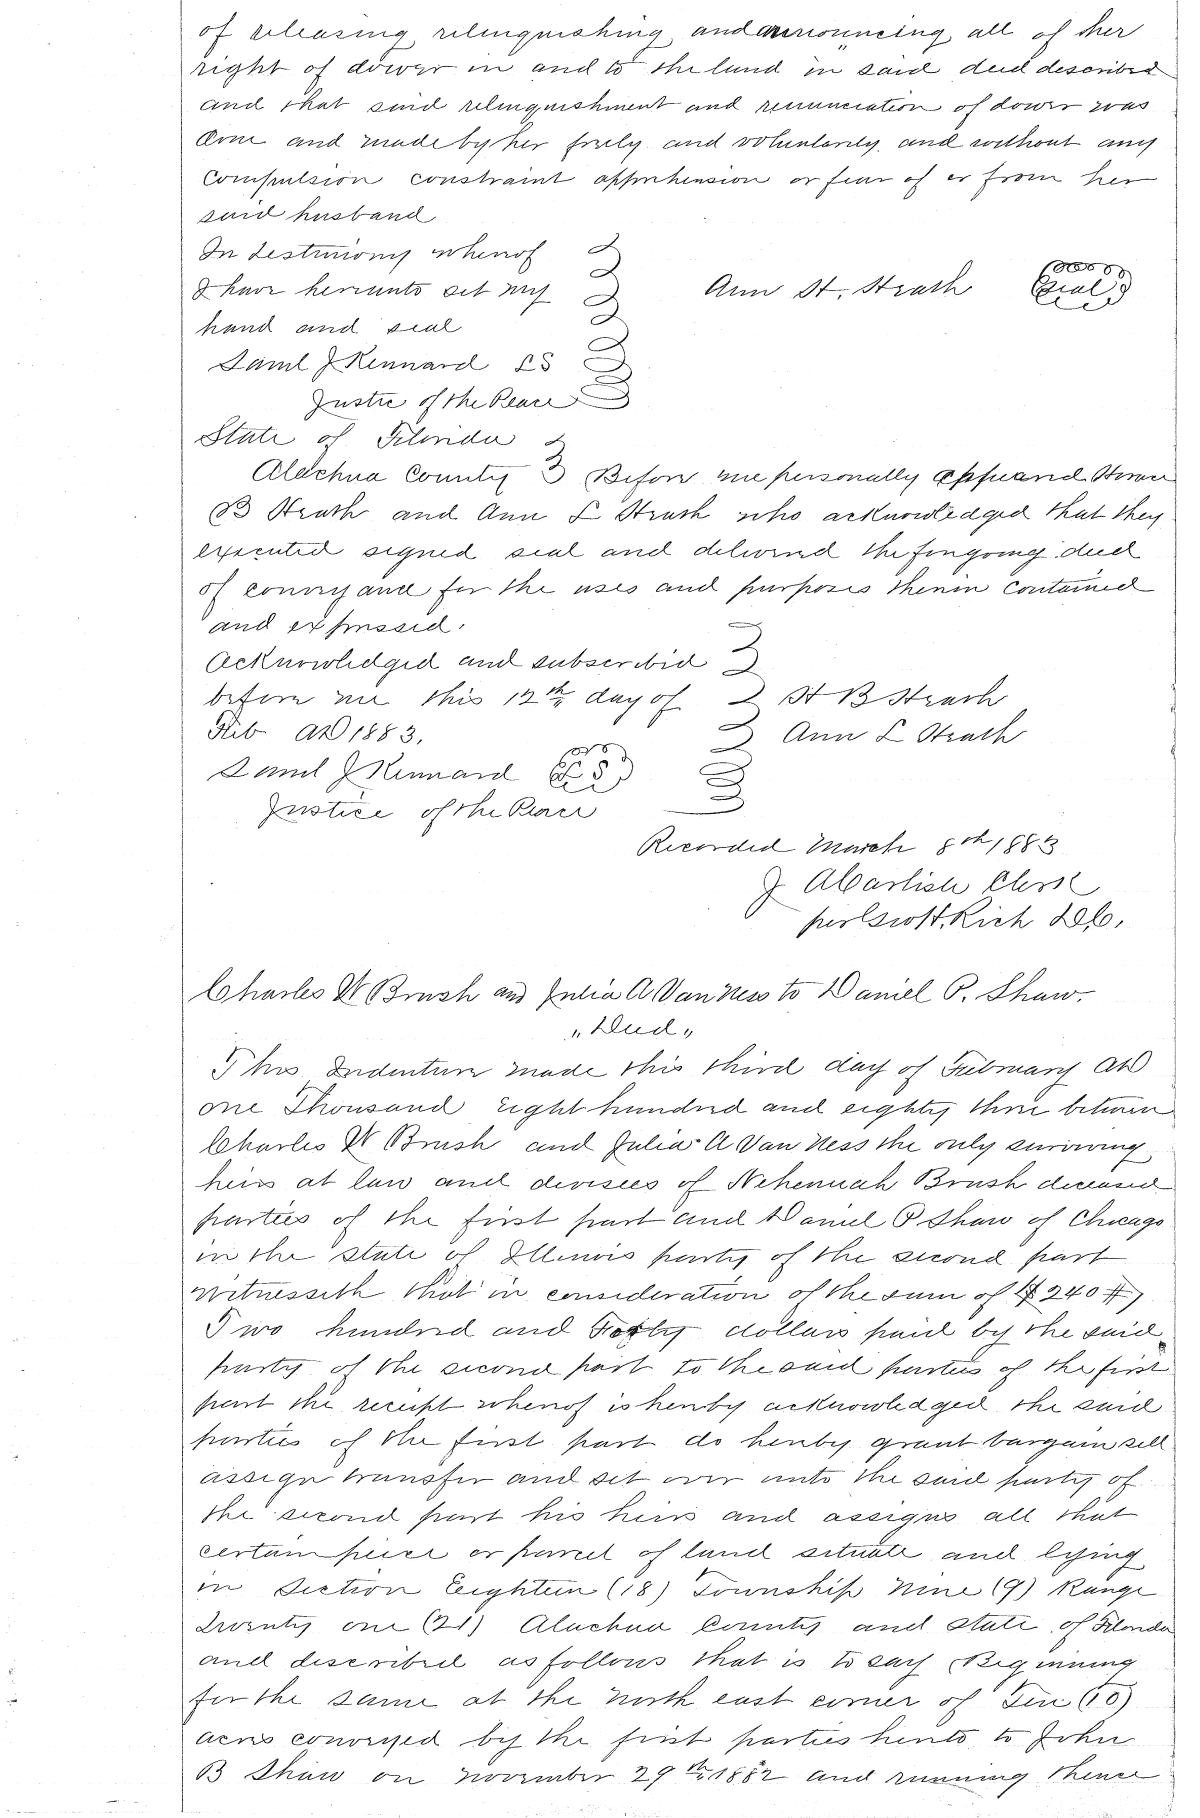 of releasing relinquishing and announcing all of her
right of dower in and to the land in said deed described
and that said relinquishment and renunciation of dower was
done and made by her freely and voluntarily and without any
compulsion constraint apprehension or fear of or from her
said husband
In testimony whereof
I have hereunto set my Ann St. Strath Seal
hand and seal
Saml J Kennard LS
Justice of the Peace
State of Florida
Alachua County Before me personally appeared
B Strath and Ann L Strath who acknowledged that they
executed signed seal and delivered the foregoing deed
of conveyance for the uses and purposes therein contained
and expressed.
Acknowledged and subscribed
before me this 12th day of H B Strath
Feb AD 1883. Ann L Strath
Saml J Kennard LS
Justice of the Peace
Recorded March 8th 1883
J A Carlisle Clerk
per Scott, Rich D.C.
Charles W Brush and Julia A Van Ness to Daniel P. Shaw.
"Deed"
This Indenture made this third day of February AD
one Thousand Eight hundred and eighty three between
Charles W Brush and Julia A Van Ness the only surviving
heirs at law and devisees of Nehemiah Brush deceased
parties of the first part and Daniel P Shaw of Chicago
in the state of Illinois party of the second part
Witnesseth that in consideration of the sum of $240
Two hundred and Forty dollars paid by the said
party of the second part to the said parties of the first
part the receipt whereof is hereby acknowledged the said
parties of the first part do hereby grant bargain sell
assign transfer and set over unto the said party of
the second part his heirs and assigns all that
certain piece or parcel of land situate and lying
in Section Eighteen (18) Township Nine (9) Range
Twenty one (21) Alachua County and State of Florida
and described as follows that is to say Beginning
for the same at the north east corner of Ten (10)
acres conveyed by the first parties hereto to John
B Shaw on November 29th 1882 and running thence